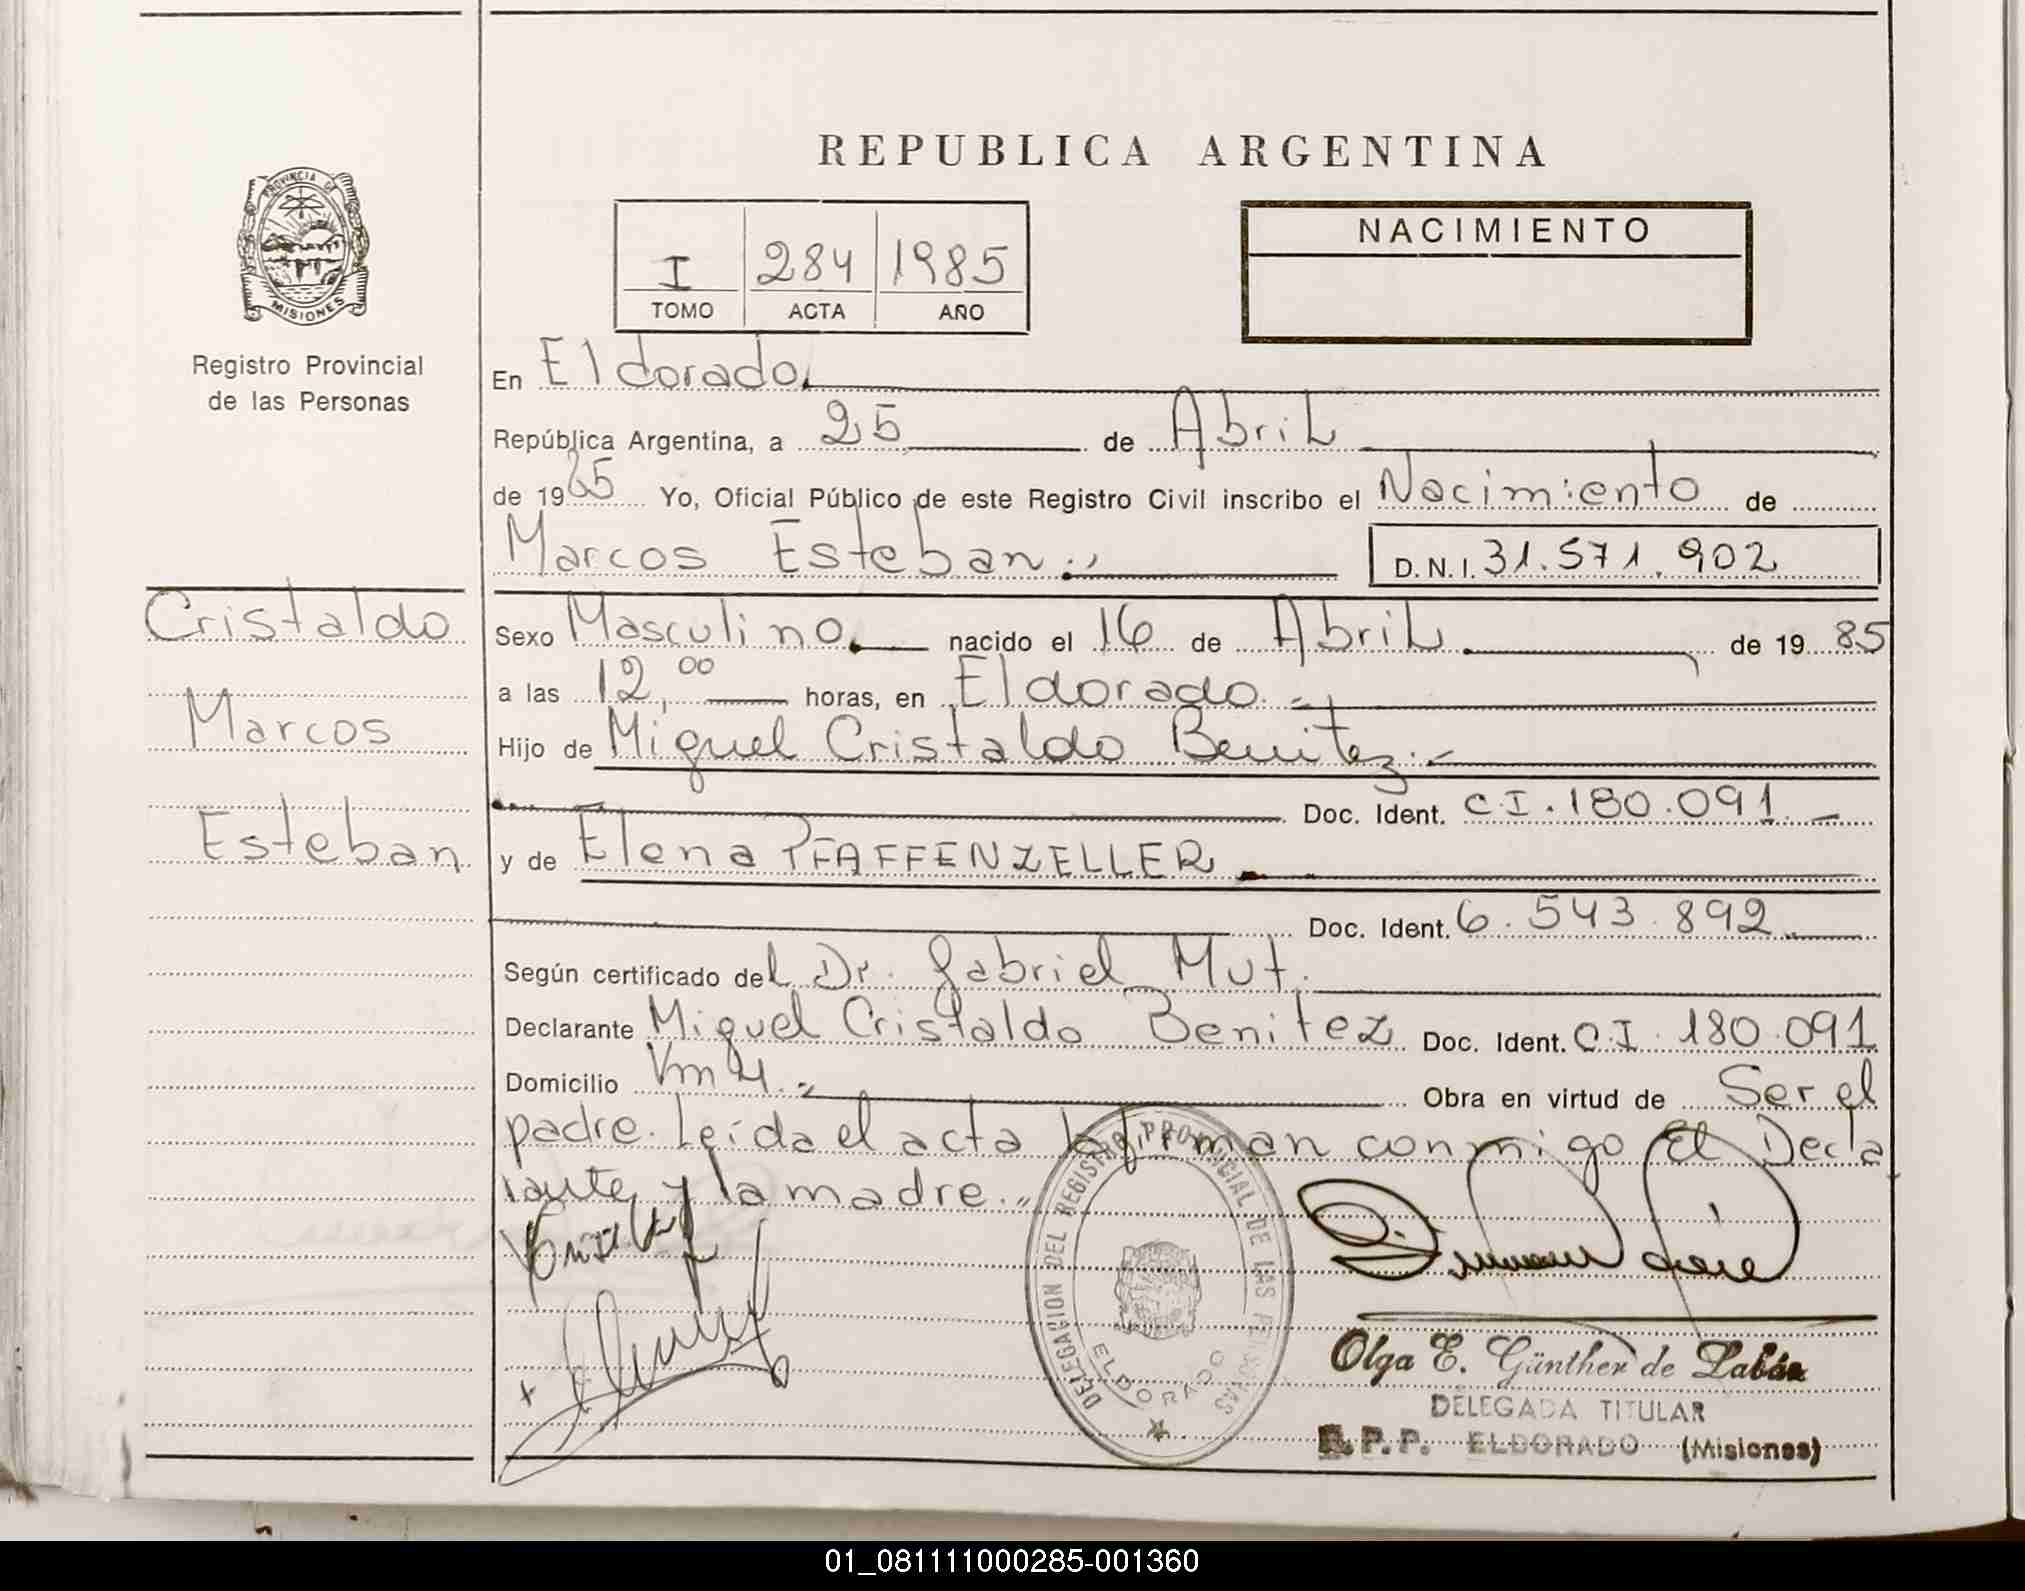 REPUBLICA ARGENTINA
PROVINCIA DE
MISIONES
Registro Provincial
de las Personas
I 284 1985
TOMO ACTA AÑO
NACIMIENTO
En Eldorado
República Argentina, a 25 de Abril
de 1985 Yo, Oficial Público de este Registro Civil inscribo el Nacimiento de
Marcos Esteban D.N.I. 31.571.902
Cristaldo
Marcos
Esteban
Sexo Masculino nacido el 16 de Abril de 1985
a las 12,00 horas, en Eldorado
Hijo de Miguel Cristaldo Benitez
Doc. Ident. C.I. 180.091
y de Elena PFAFFENZELLER
Doc. Ident. 6.543.892
Según certificado del Dr. Gabriel Mut.
Declarante Miguel Cristaldo Benitez Doc. Ident. C.I. 180.091
Domicilio Km 4 Obra en virtud de Ser el
padre. Leída el acta la firman conmigo El Decla
rante y la madre.
DELEGACION DEL REGISTRO PROVINCIAL DE LAS PERSONAS
ELDORADO
Olga E. Günther de Labán
DELEGADA TITULAR
R.P.P. ELDORADO (Misiones)
01_081111000285-001360